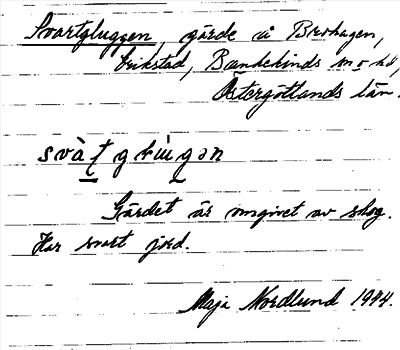 Svartgluggen, gärde å Brohagen,
Grikstad, Bankekinds sn o hd,
Östergötlands län.
Gärdet är omgivet av skog.
Har svart jord.
Maja Nordlund 1944.